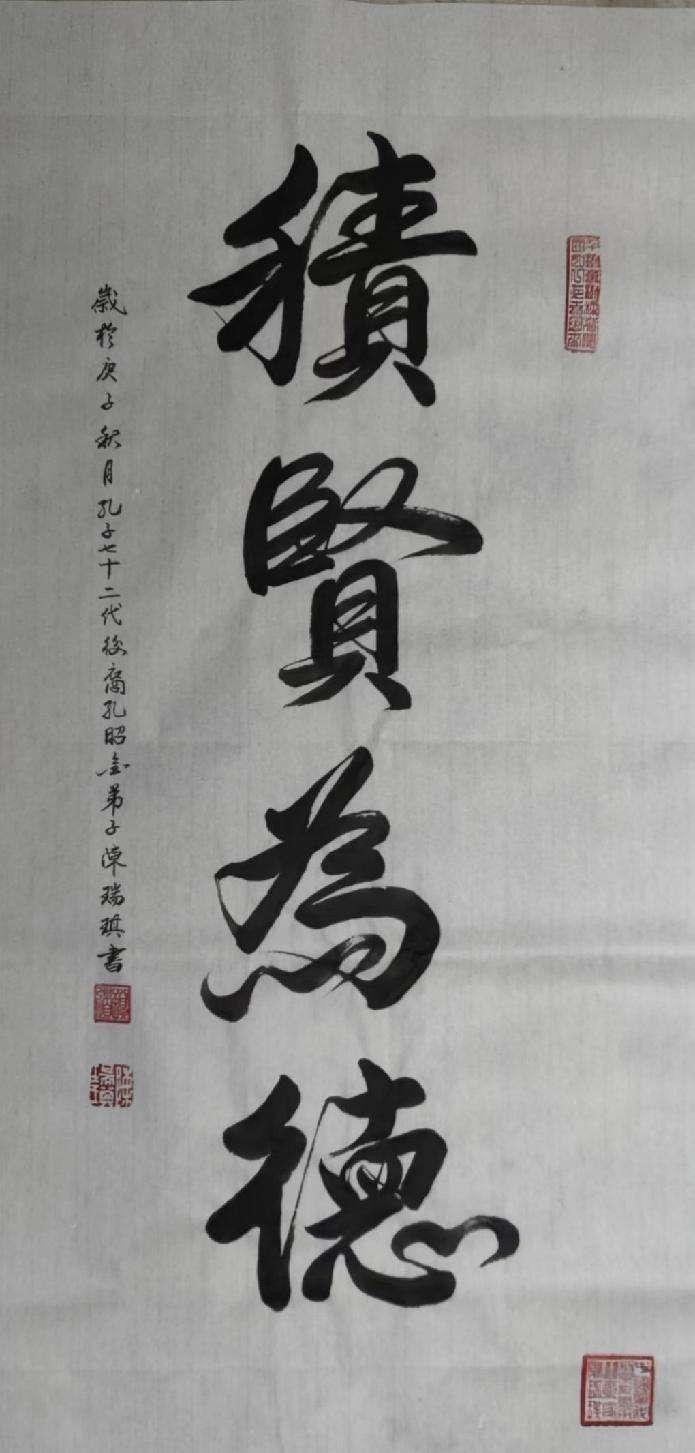 積賢為德
歲於庚子秋月孔子七十二代後裔孔昭金弟子陳瑞琪書